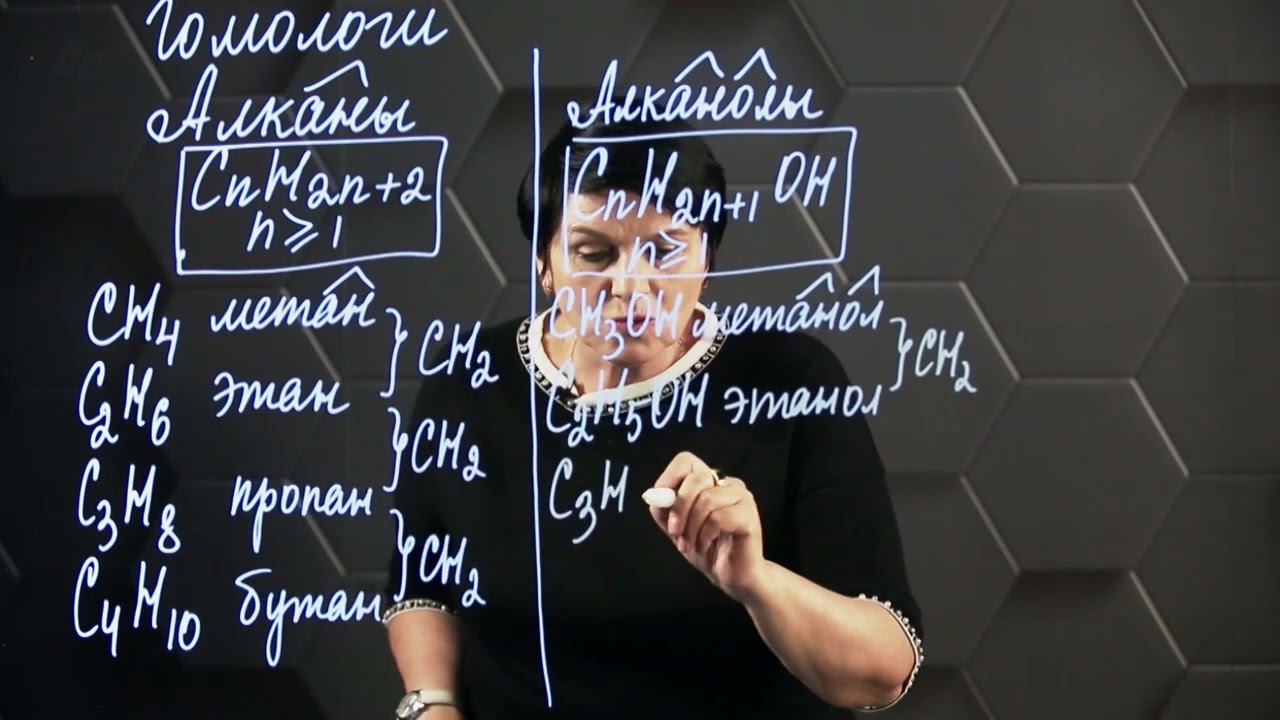 Гомологи
Алканы
CnH2n+2
n⩾1
CH4 метан
C2H6 этан
C3H8 пропан
C4H10 бутан
}CH2
}CH2
}CH2
Алканолы
CnH2n+1OH
n⩾1
CH3OH метанол
C2H5OH этанол
}CH2
C3H